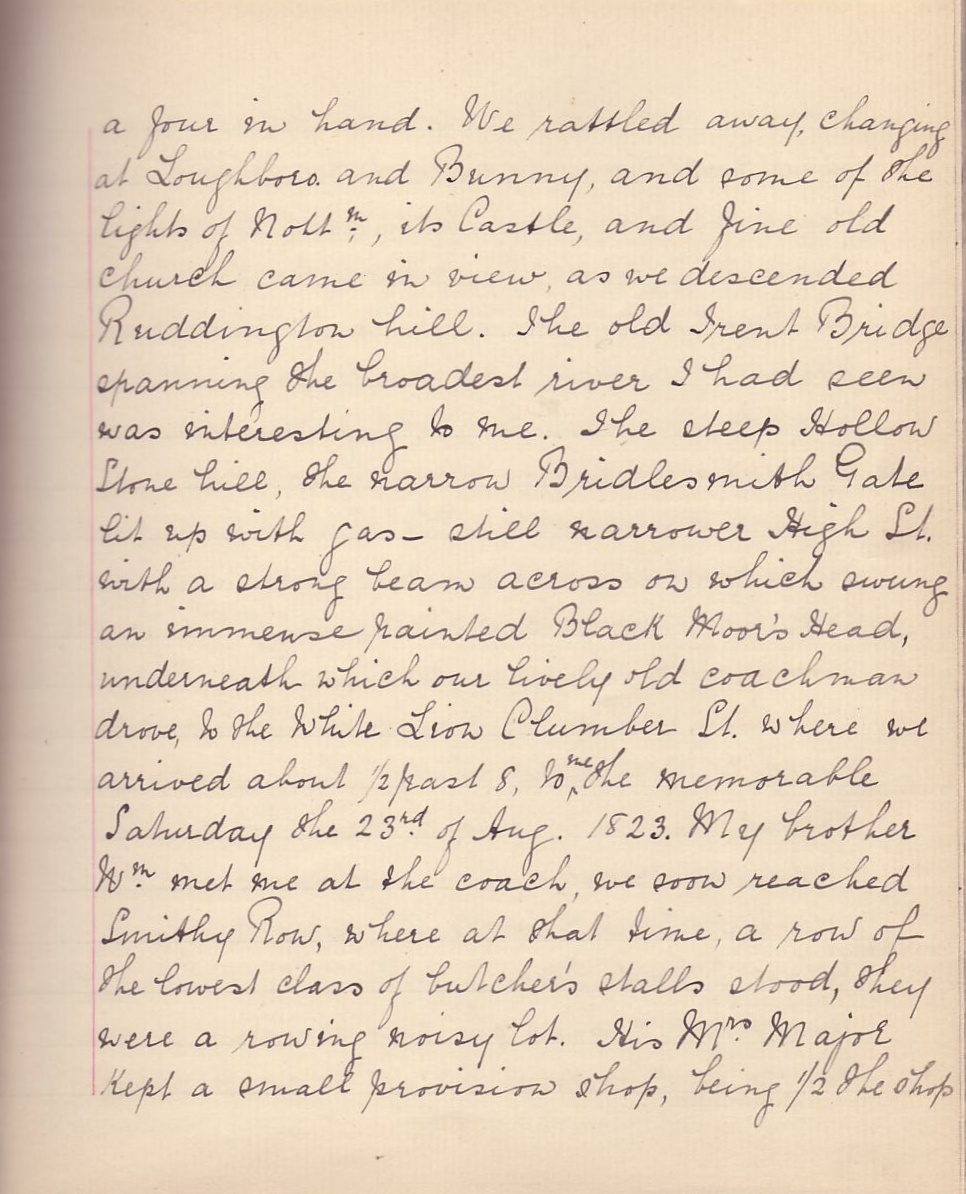 a four in hand. We rattled away, changing
at Loughboro. and Bunny, and some of the
lights of Nottm., its Castle, and fine old
church came in view, as we descended
Ruddington hill. The old Trent Bridge
spanning the broadest river I had seen
was interesting to me. The steep Hollow
Stone hill, the narrow Bridlesmith Gate
lit up with gas - still narrower High St.
with a strong beam across on which swung
an immense painted Black Moor's Head,
underneath which our lively old coachman
drove, to the White Lion Clumber St. where we
arrived about 1/2 past 8, to me the memorable
Saturday the 23rd of Aug. 1823. My brother
Wm. met me at the coach, we soon reached
Smithy Row, where at that time, a row of
the lowest class of butcher's stalls stood, they
were a rowing noisy lot. His Mrs. Major
kept a small provision shop, being 1/2 the shop